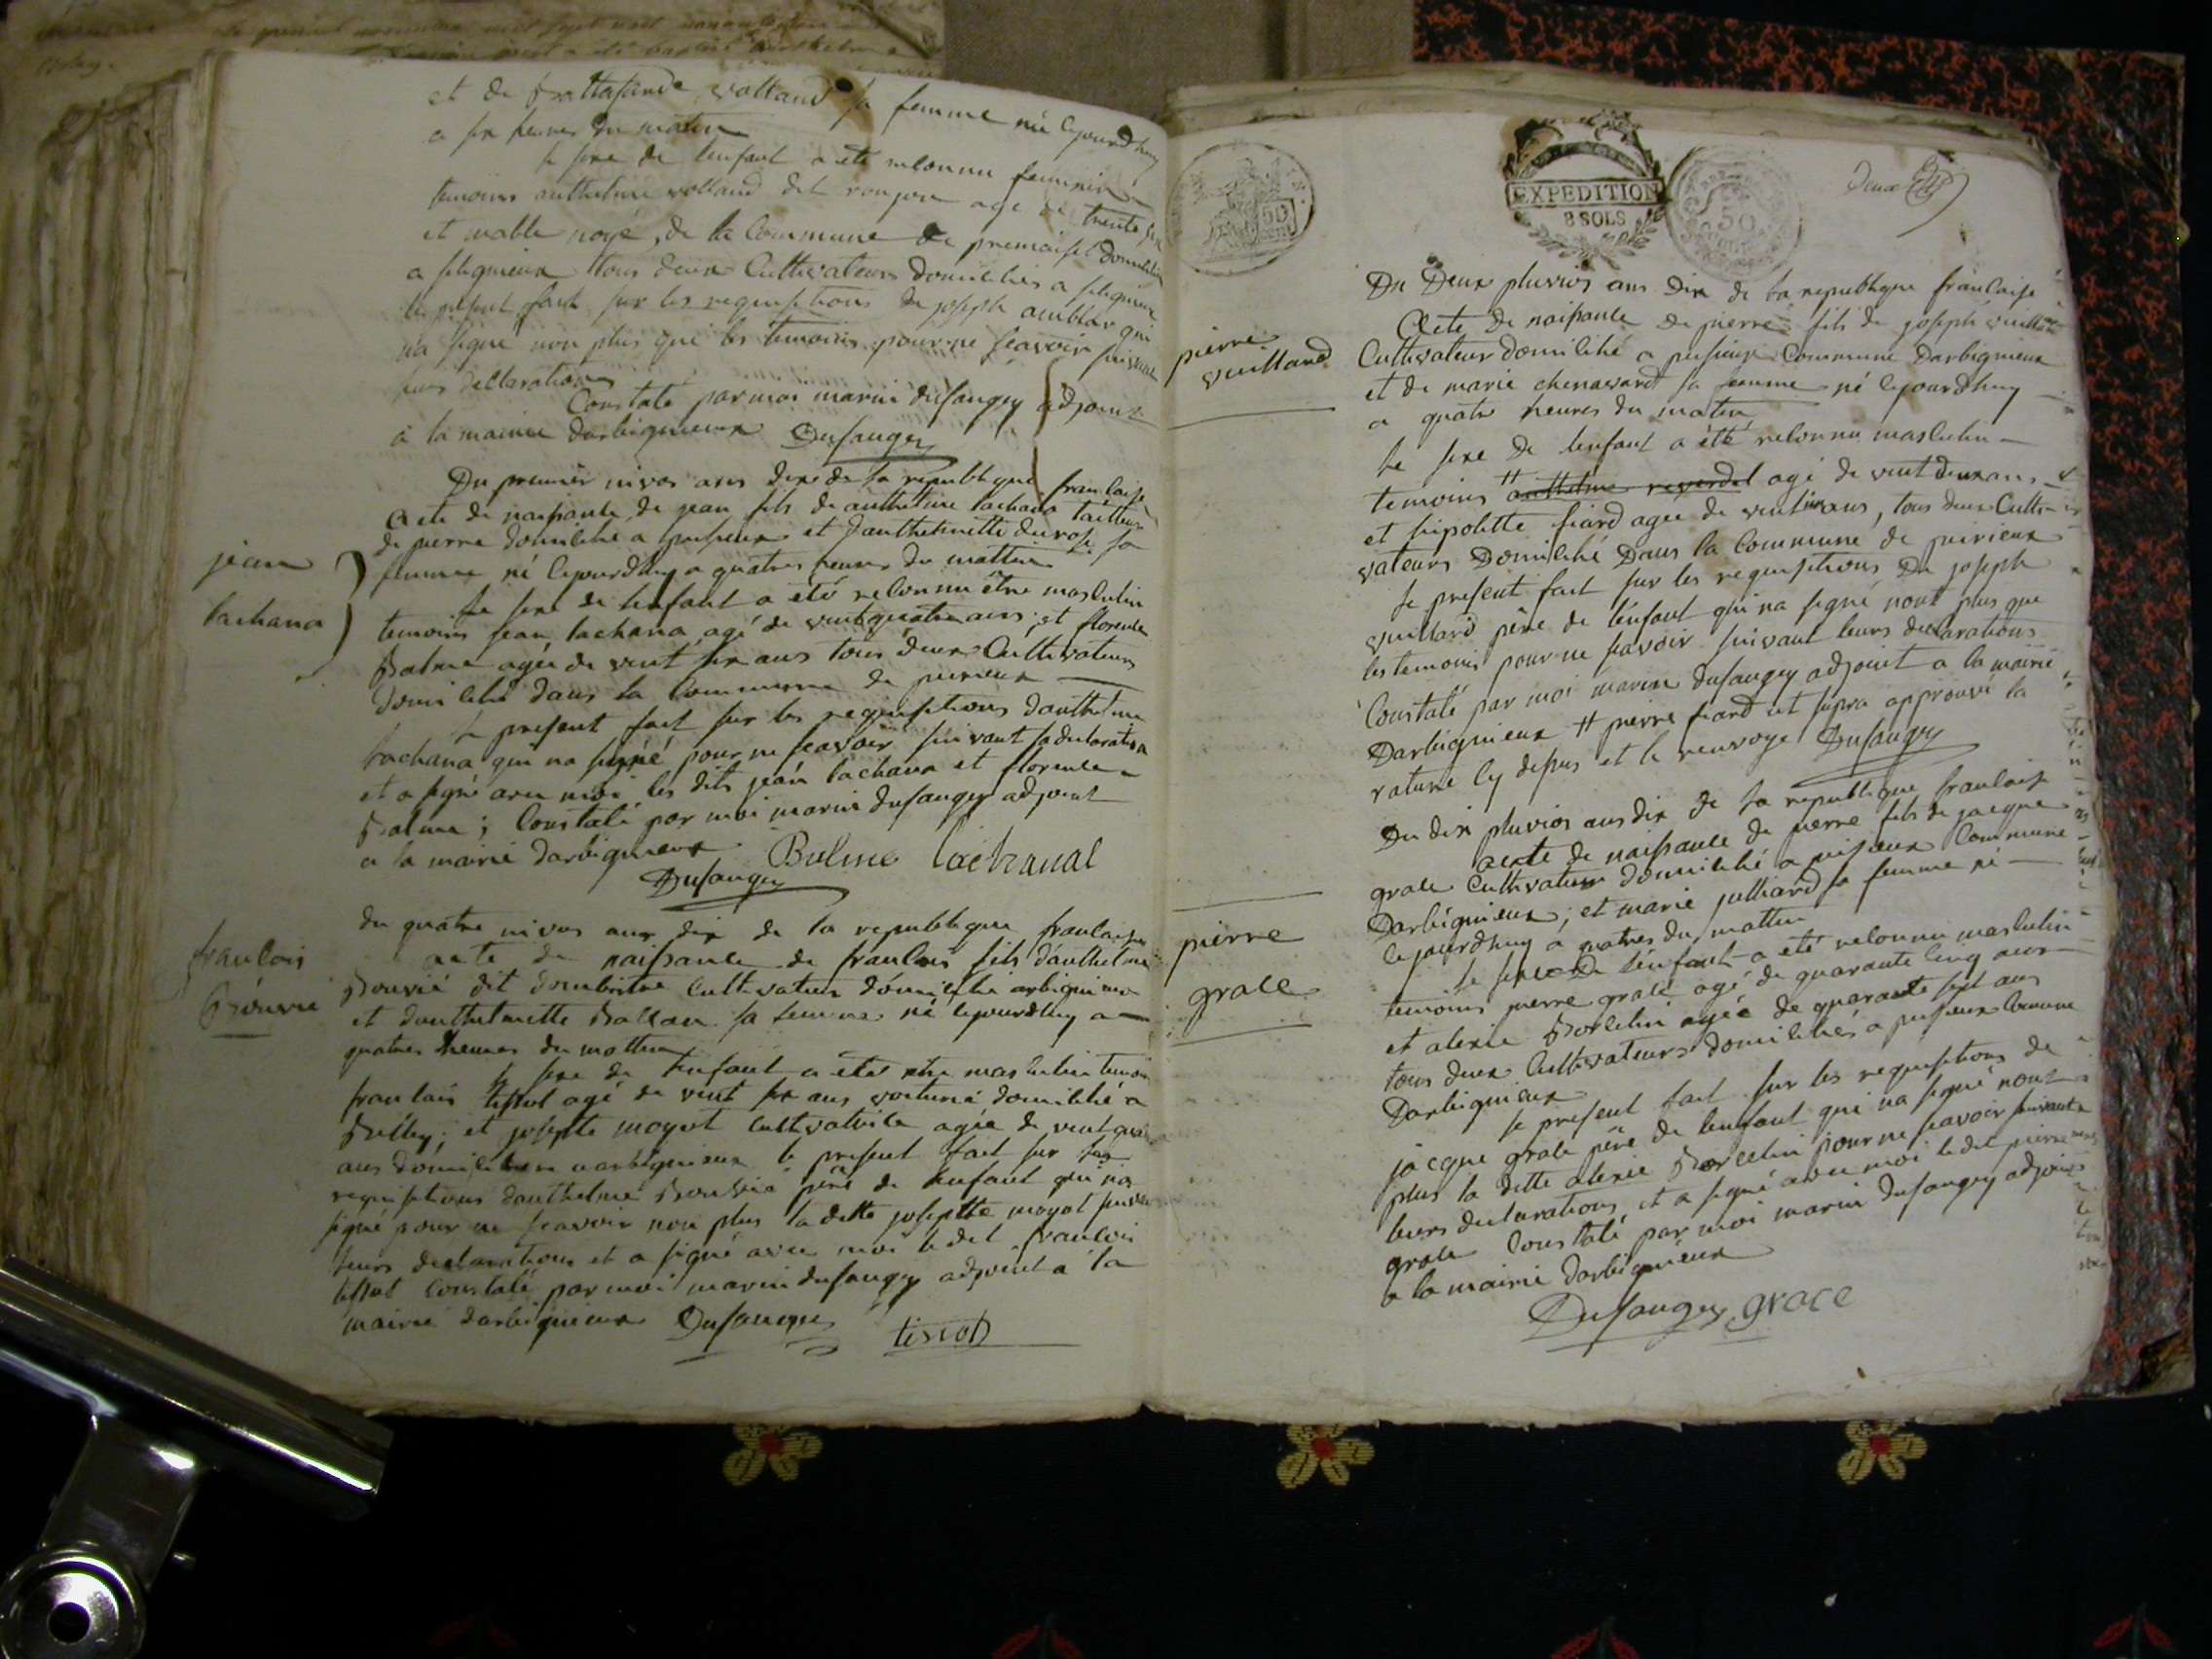 et de volland sa femme né cejourdhuy
a six heures du matin
le sexe de lenfant a eté reconnu feminin
temoins anthelme volland dit age de trente six
et noyé, de la Commune de premaisel domicilié
a peligneux tous deux Cultivateurs domiciliés a peligneux
le present fait sur les requisitions de joseph qui
na signé non plus que les temoins pour ne scavoir suivant
leurs declarations
Constaté par moi marin dusaugey adjoint
à la mairie darbignieux Dusaugey
jean
lachana
Du premier nivos ans dixe de la republique francaise
Acte de naissance de jean fils de anthelme lachana tailleur
de pierre domicilié a et danthelmette sa
femme né cejourdhuy a quatres heures du mattin
Le sexe de lenfant a eté reconnu être masculin
temoins jean lachana agé de vint quatre ans, et florence
Balme agée de vint six ans tous deux Cultivateurs
domicilié dans la Commune de
le present fait sur les requisitions danthelme
lachana qui na signé pour ne scavoir suivant sa declaration
et a signé avec moi les dits jean lachana et florence
Balme; Constaté par moi marin dusaugey adjoint
a la mairie darbignieux Balme lachanal
Dusaugey
francois
Bouvié
du quatre nivos ans dix de la republique francaise
acte de naissance de francois fils danthelme
Bouvié dit cultivateur domicilié arbignieux
et danthelmette sa femme né cejourdhuy a
quatres heures du mattin
le sexe de lenfant a eté etre masculin temoins
francois tissot agé de vint six ans voiturié domicilié a
Belley; et josepte moyot cultivatrice agée de vint quatre
ans domiciliere a arbignieux le present fait sur les
requisitions danthelme Bouvié père de lenfant qui na
signé pour ne scavoir non plus la ditte josepte moyot suivant
leurs declarations et a signé avec moi le dit francois
tissot Constaté par moi marin dusaugey adjoint a la
mairie darbignieux Dusaugey tissot
EXPEDITION
8 SOLS
50
50
Deux
pierre
vuillard
Du Deux pluvios ans dix de la republique francaise
Acte de naissance de pierre fils de joseph vuillard
Cultivateur domicilié a Commune Darbignieux
et de marie chenavard sa femme né cejourdhuy
a quatre heures du matin
Le sexe de lenfant a été reconnu masculin
temoins # anthelme reverdel agé de vint deux ans
et hipolitte fiard agée de vint ans, tous deux Culti-
vateurs Domicilié Dans la Commune de
Le present fait sur les requisitions De joseph
vuillard père de lenfant qui na signé nont plus que
les temoins pour ne scavoir suivant leurs declarations
Constaté par moi marin dusaugey adjoint a la mairie
Darbignieux # pierre fiard ut supra approuvé la
rature cy dessus et le renvoye Dusaugey
pierre
grace
Du dix pluvios ans dix de la republique francaise
acte de naissance de pierre fils de jacque
grace Cultivateur domicilié a Commune
Darbignieux; et marie julliard sa femme né
cejourdhuy a quatres du mattin
le sexe De lenfant a eté reconnu masculin
temoins pierre grace agé de quarante cinq ans
et alexie Borcelin agée de quarante sept ans
tous deux Cultivateurs domiciliés a Commune
Darbignieux
le present fait sur les requisitions de
jacque grace père de lenfant qui na signé nont
plus la ditte alexie Borcelin pour ne scavoir suivant
leurs declarations, et a signé avec moi le dit pierre
grace Constaté par moi marin dusaugey adjoint
a la mairie darbignieux
Dusaugey grace